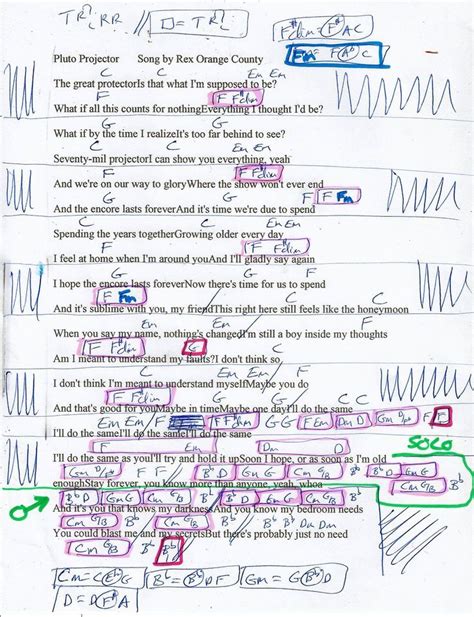 TR RR □ = TR F#dim = F# A C
Fm = F Ab C
Pluto Projector Song by Rex Orange County
C C Em Em
The great protectorIs that what I'm supposed to be?
F F F#dim
What if all this counts for nothingEverything I thought I'd be?
G G
What if by the time I realizeIt's too far behind to see?
C C Em Em
Seventy-mil projectorI can show you everything, yeah
F F F#dim
And we're on our way to gloryWhere the show won't ever end
G G F Fm
And the encore lasts foreverAnd it's time we're due to spend
C C Em Em
Spending the years togetherGrowing older every day
F F F#dim
I feel at home when I'm around youAnd I'll gladly say again
G G F
I hope the encore lasts foreverNow there's time for us to spend
F Fm C C
And it's sublime with you, my friendThis right here still feels like the honeymoon
Em Em F
When you say my name, nothing's changedI'm still a boy inside my thoughts
F F#dim C
Am I meant to understand my faults?I don't think so
C Em Em F
I don't think I'm meant to understand myselfMaybe you do
F F#dim G G C C
And that's good for youMaybe in timeMaybe one dayI'll do the same
Em Em F F F#dim G G F Em Dm G F
I'll do the sameI'll do the sameI'll do the same
F Em Dm SOLO
I'll do the same as you'll try and hold it upSoon I hope, or as soon as I'm old
F F Bb D Gm G Cm G/B Bb D Gm G
enoughStay forever, you know more than anyone, yeah, whoa
Cm G/B Bb
Bb D Gm G Cm G/B Bb D Gm G Cm G/B Bb
And it's you that knows my darknessAnd you know my bedroom needs
Cm G/B Bb Cm G/B Bb Bb Dm Dm
You could blast me and my secretsBut there's probably just no need
Cm G/B Bb Cm G/B Bb
Cm = C Eb G Bb = Bb D F Gm = G Bb D
D = D F# A